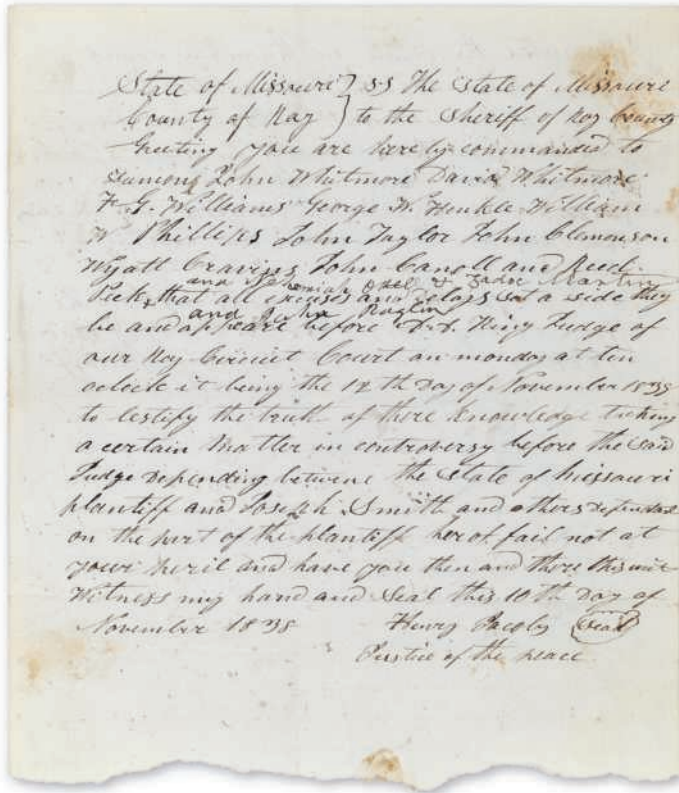 State of Missouri } S.S The State of Missouri
County of Ray } to the Sheriff of Ray County
Greeting you are hereby commanded to
Sumons John Whitmore David Whitmore
F G. Williams George W. Henkle William
W Phillips John Taylor John Clemonson
Wyatt Cravins John Canoll and Reed
and Nehemiah Odel & Zadoc Martin
Peck, that all excuses and delays set a side they
and John Raglin
be and appeare before A. A. King Judge of
our Ray Circuit Court on monday at ten
oclock it being the 12th Day of November 1838
to testify the truth of there knowledge tuching
a certain matter in controversy before the said
Judge Depending betwene the State of Missouri
plantiff and Joseph Smith and others Defendant
on the part of the plantiff herof fail not at
your peril and have you then and there this writ
Witness my hand and Seal this 10th Day of
November 1838 Henry Jacobs (Seal)
Justice of the peace